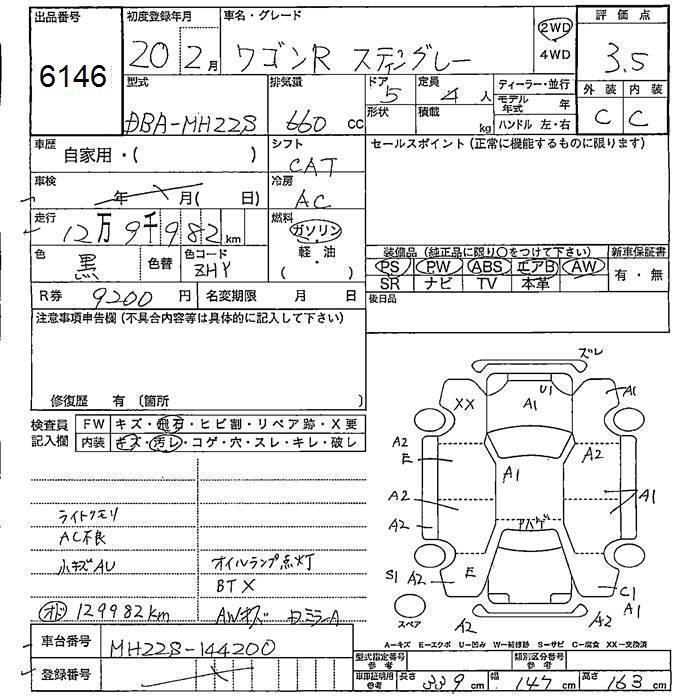 出品番号
6146
初度登録年月
20 2月
車名・グレード
ワゴンR スティングレー
2WD
4WD
評価点
3.5
型式
DBA-MH22S
排気量
660 cc
ドア
5
形状
定員
4 人
積載
kg
ディーラー・並行
モデル年式 年
ハンドル 左・右
外装 内装
C C
車歴
自家用・( )
シフト
CAT
セールスポイント(正常に機能するものに限ります)
車検
年 月( 日)
冷房
AC
走行
12万9千982km
燃料
ガソリン
・
軽・油
( )
色
黒
色替
色コード
ZHY
装備品(純正品に限り○をつけて下さい)
新車保証書
PS PW ABS エアB AW
SR ナビ TV 本革
有・無
R券 9200 円 名変期限 月 日
後日品
注意事項申告欄(不具合内容等は具体的に記入して下さい)
修復歴 有(箇所 )
検査員
記入欄
FW キズ・飛石・ヒビ割・リペア跡・X要
内装 キズ・汚レ・コゲ・穴・スレ・キレ・破レ
ライトクモリ
AC不良
小キズAU
オイルランプ点灯
BTX
オド 129982km
AWキズ
車台番号
MH22S-144200
登録番号
ズレ
XX
U1
A1
A1
A2
E
A2
A1
A2
A2
A1
アバゲ
S1
A2
E
C1
A1
スペア
A2
A2
A-キズ E-エクボ U-凹み W-補修跡 S-サビ C-腐食 XX-交換済
型式指定番号
参考
類別区分番号
参考
車印証明用
参考
長さ 339 cm
幅 147 cm
高さ 163 cm